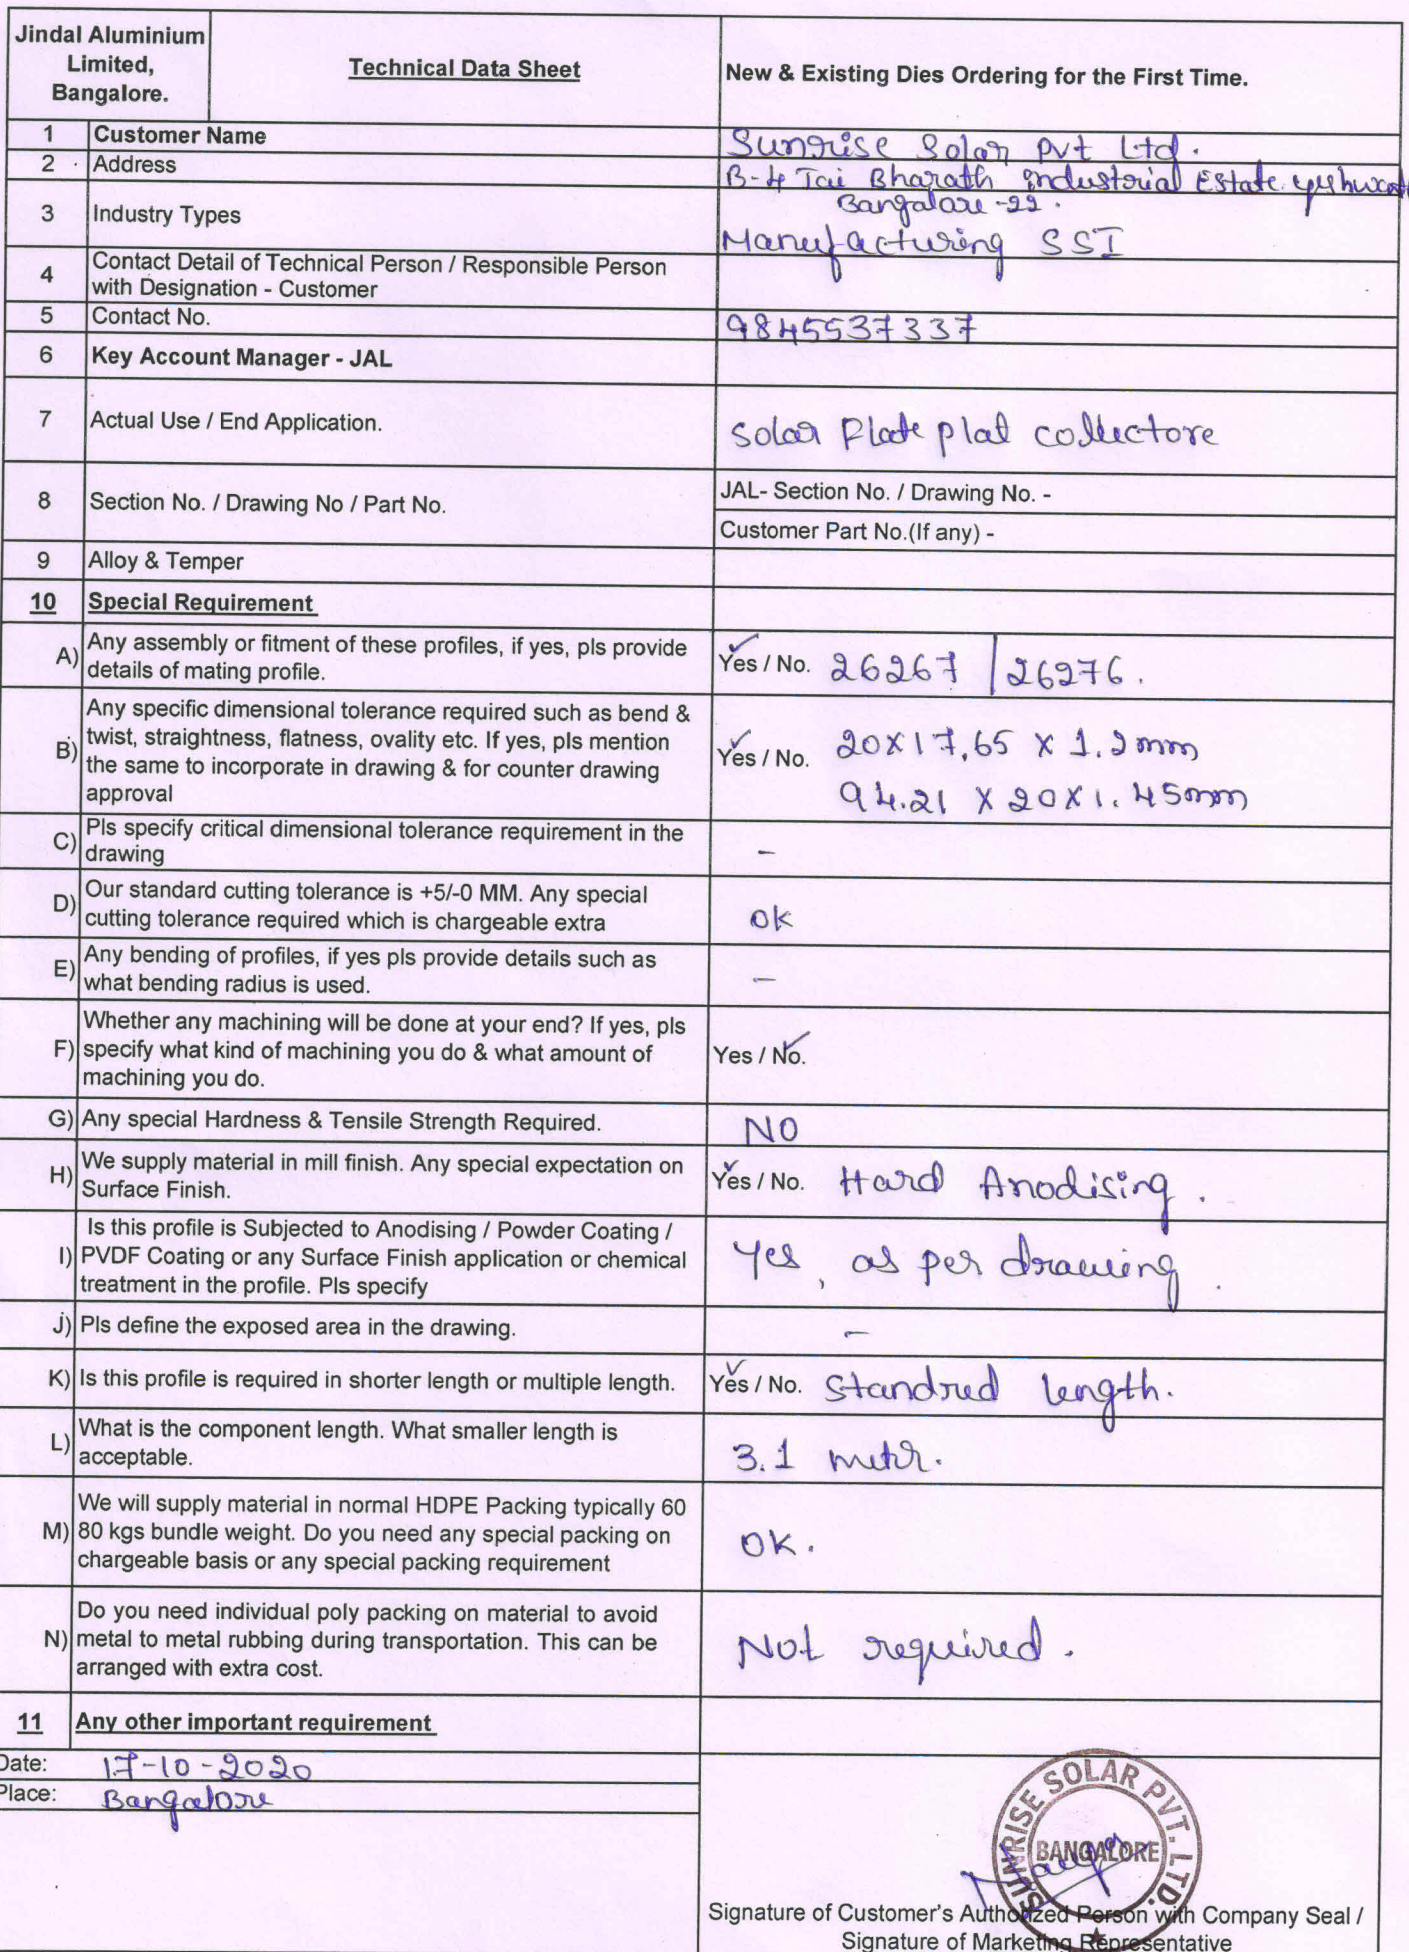 Jindal Aluminium
Limited,
Bangalore.
Technical Data Sheet
New & Existing Dies Ordering for the First Time.
1 Customer Name Sunrise Solar Pvt Ltd.
2 Address B-4 Tai Bharath industrial Estate
Bangalore-22.
3 Industry Types Manufacturing SSI
4 Contact Detail of Technical Person / Responsible Person
with Designation - Customer
5 Contact No. 9845537337
6 Key Account Manager - JAL
7 Actual Use / End Application. Solar Plate plat collectore
8 Section No. / Drawing No / Part No.
JAL- Section No. / Drawing No. -
Customer Part No.(If any) -
9 Alloy & Temper
10 Special Requirement
A) Any assembly or fitment of these profiles, if yes, pls provide
details of mating profile.
Yes / No. 26267 | 26276.
B) Any specific dimensional tolerance required such as bend &
twist, straightness, flatness, ovality etc. If yes, pls mention
the same to incorporate in drawing & for counter drawing
approval
Yes / No. 20X17.65 X 1.2mm
94.21 X 20X1.45mm
C) Pls specify critical dimensional tolerance requirement in the
drawing
-
D) Our standard cutting tolerance is +5/-0 MM. Any special
cutting tolerance required which is chargeable extra
ok
E) Any bending of profiles, if yes pls provide details such as
what bending radius is used.
-
F) Whether any machining will be done at your end? If yes, pls
specify what kind of machining you do & what amount of
machining you do.
Yes / No.
G) Any special Hardness & Tensile Strength Required. NO
H) We supply material in mill finish. Any special expectation on
Surface Finish.
Yes / No. Hard Anodising.
I) Is this profile is Subjected to Anodising / Powder Coating /
PVDF Coating or any Surface Finish application or chemical
treatment in the profile. Pls specify
Yes, as per drawing.
J) Pls define the exposed area in the drawing. -
K) Is this profile is required in shorter length or multiple length. Yes / No. Standred length.
L) What is the component length. What smaller length is
acceptable.
3.1 metr.
M) We will supply material in normal HDPE Packing typically 60
80 kgs bundle weight. Do you need any special packing on
chargeable basis or any special packing requirement
OK.
N) Do you need individual poly packing on material to avoid
metal to metal rubbing during transportation. This can be
arranged with extra cost.
Not required.
11 Any other important requirement
Date: 17-10-2020
Place: Bangalore
SUNRISE SOLAR PVT. LTD.
BANGALORE
Signature of Customer's Authorized Person with Company Seal /
Signature of Marketing Representative